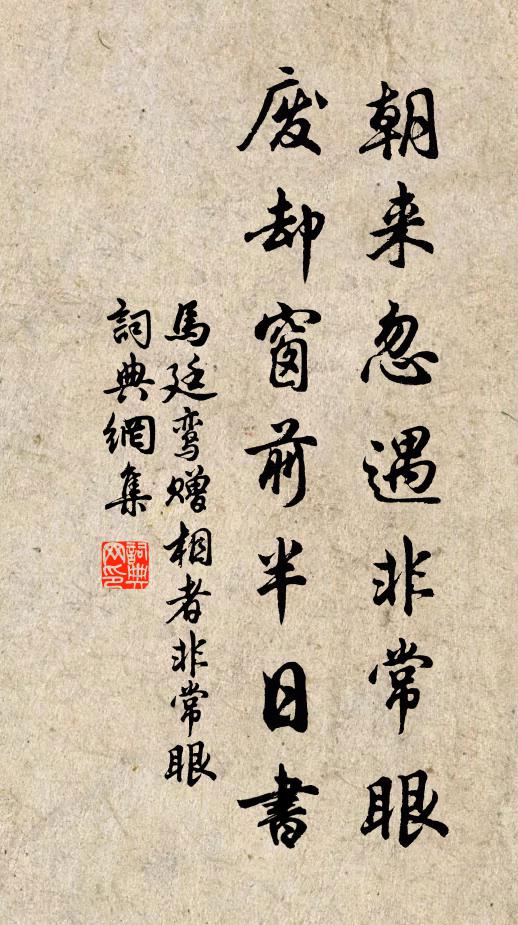 朝来忽遇非常眼
废却窗前半日書
馬廷鸾赠相者非常眼
詞典網集
詞典
网印